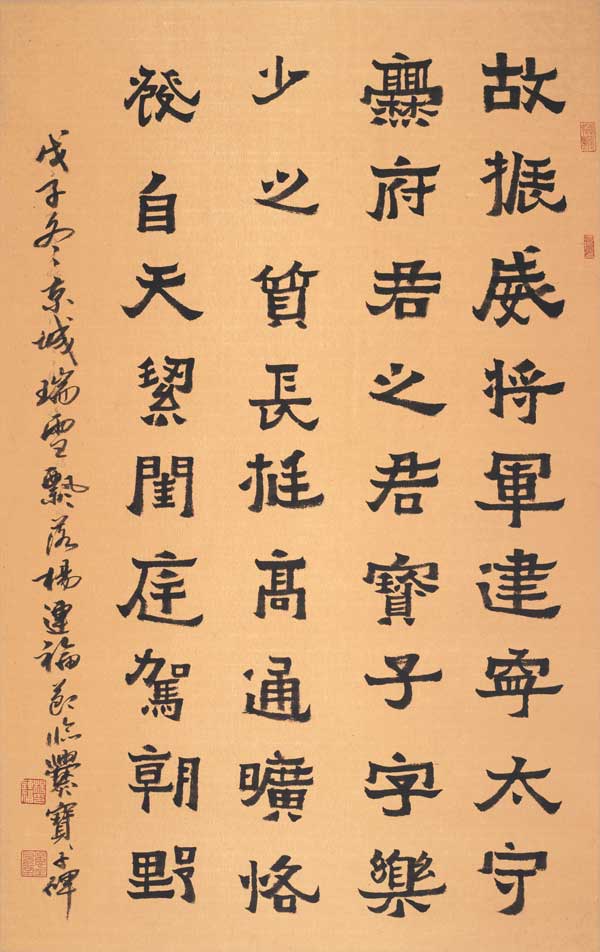 故振威将軍建寧太守
爨府君之君寶子字樂
少之質長挺高通曠恪
發自天絜閨庭駕朝野
戊子冬京城瑞雪飄落楊運福節臨爨寶子碑